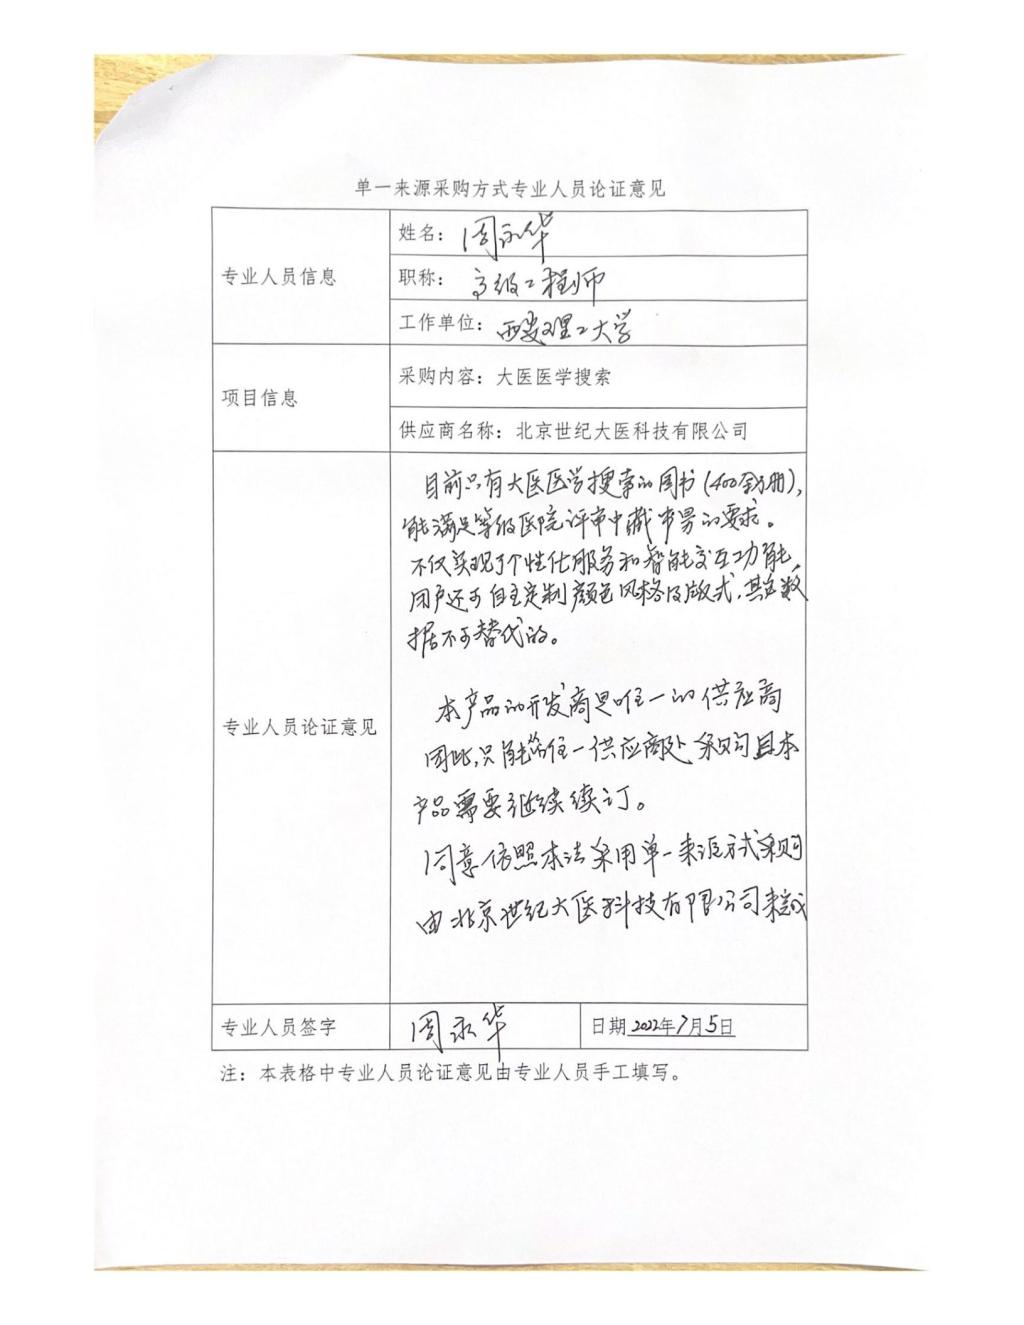 单一来源采购方式专业人员论证意见
专业人员信息
姓名：周永华
职称：高级工程师
工作单位：西安理工大学
项目信息
采购内容：大医医学搜索
供应商名称：北京世纪大医科技有限公司
专业人员论证意见
目前只有大医医学搜索的图书(400余万册)，
能满足等级医院评审中藏书量的要求。
不仅实现了个性化服务和智能交互功能，
用户还可自主定制颜色风格及版式，其数
据不可替代的。
本产品的开发商是唯一的供应商
因此，只能从唯一供应商处采购且本
产品需要继续续订。
同意依照本法采用单一来源方式采购
由北京世纪大医科技有限公司来
专业人员签字
周永华
日期2022年7月5日
注：本表格中专业人员论证意见由专业人员手工填写。